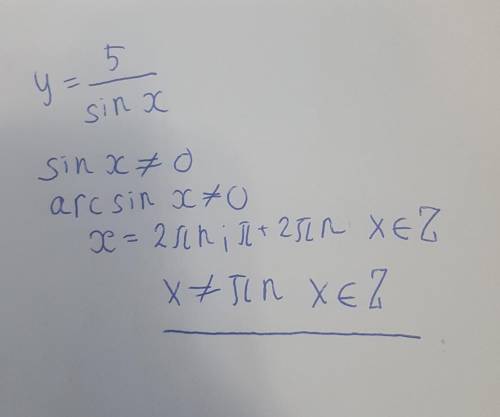 y = 5/sin x
sin x ≠ 0
arcsin x ≠ 0
x = 2πn; π + 2πn x ∈ Z
x ≠ πn x ∈ Z